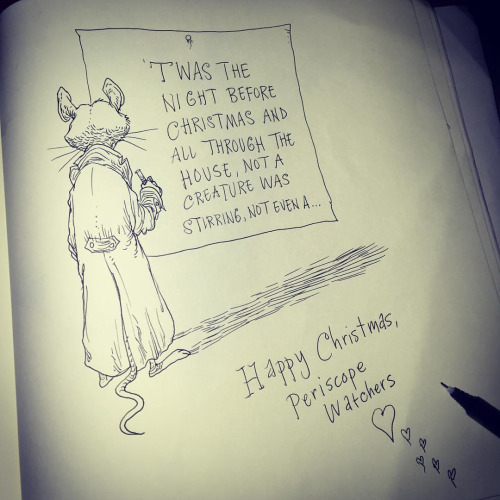 'TWAS THE
NIGHT BEFORE
CHRISTMAS AND
ALL THROUGH THE
HOUSE, NOT A
CREATURE WAS
STIRRING, NOT EVEN A...
Happy Christmas,
Periscope
Watchers